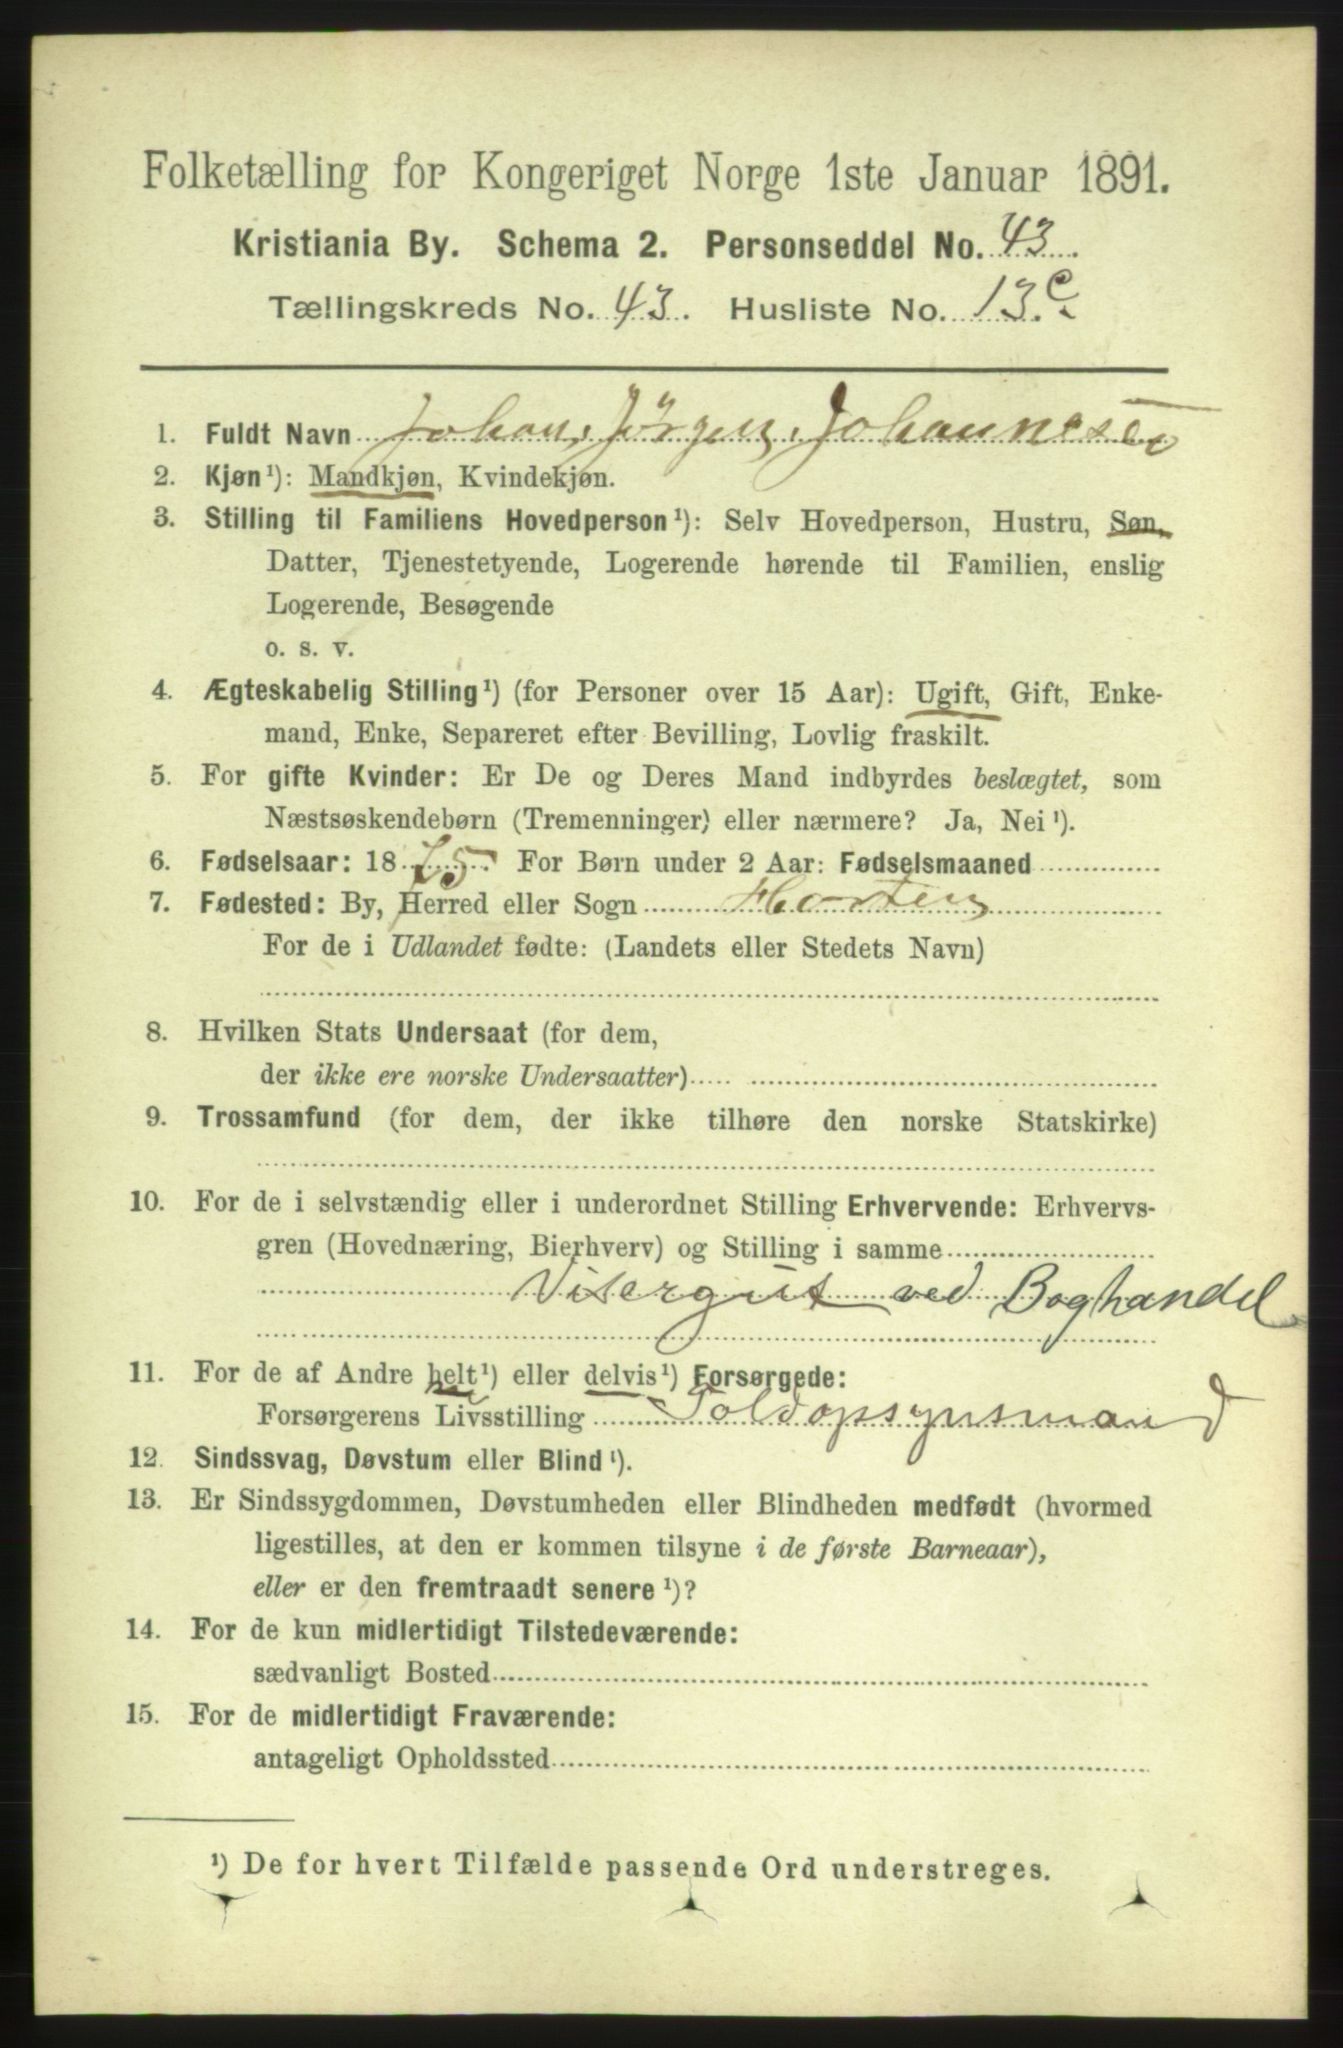 Folketælling for Kongeriget Norge 1ste Januar 1891.
Kristiania By. Schema 2. Personseddel No. 43.
Tællingskreds No. 43. Husliste No. 13.c
1. Fuldt Navn Johan Jørgen Johannesen
2. Kjøn¹): Mandkjøn, Kvindekjøn.
3. Stilling til Familiens Hovedperson¹): Selv Hovedperson, Hustru, Søn,
Datter, Tjenestetyende, Logerende hørende til Familien, enslig
Logerende, Besøgende
o. s. v.
4. Ægteskabelig Stilling¹) (for Personer over 15 Aar): Ugift, Gift, Enke-
mand, Enke, Separeret efter Bevilling, Lovlig fraskilt.
5. For gifte Kvinder: Er De og Deres Mand indbyrdes beslægtet, som
Næstsøskendebørn (Tremenninger) eller nærmere? Ja, Nei¹).
6. Fødselsaar: 1875. For Børn under 2 Aar: Fødselsmaaned
7. Fødested: By, Herred eller Sogn Horten
For de i Udlandet fødte: (Landets eller Stedets Navn)
8. Hvilken Stats Undersaat (for dem,
der ikke ere norske Undersaatter)
9. Trossamfund (for dem, der ikke tilhøre den norske Statskirke)
10. For de i selvstændig eller i underordnet Stilling Erhvervende: Erhvervs-
gren (Hovednæring, Bierhverv) og Stilling i samme
Visergut ved Boghandel
11. For de af Andre helt¹) eller delvis¹) Forsørgede:
Forsørgerens Livsstilling Toldopsynsmand
12. Sindssvag, Døvstum eller Blind¹).
13. Er Sindssygdommen, Døvstumheden eller Blindheden medfødt (hvormed
ligestilles, at den er kommen tilsyne i de første Barneaar),
eller er den fremtraadt senere¹)?
14. For de kun midlertidigt Tilstedeværende:
sædvanligt Bosted
15. For de midlertidigt Fraværende:
antageligt Opholdssted
¹) De for hvert Tilfælde passende Ord understreges.